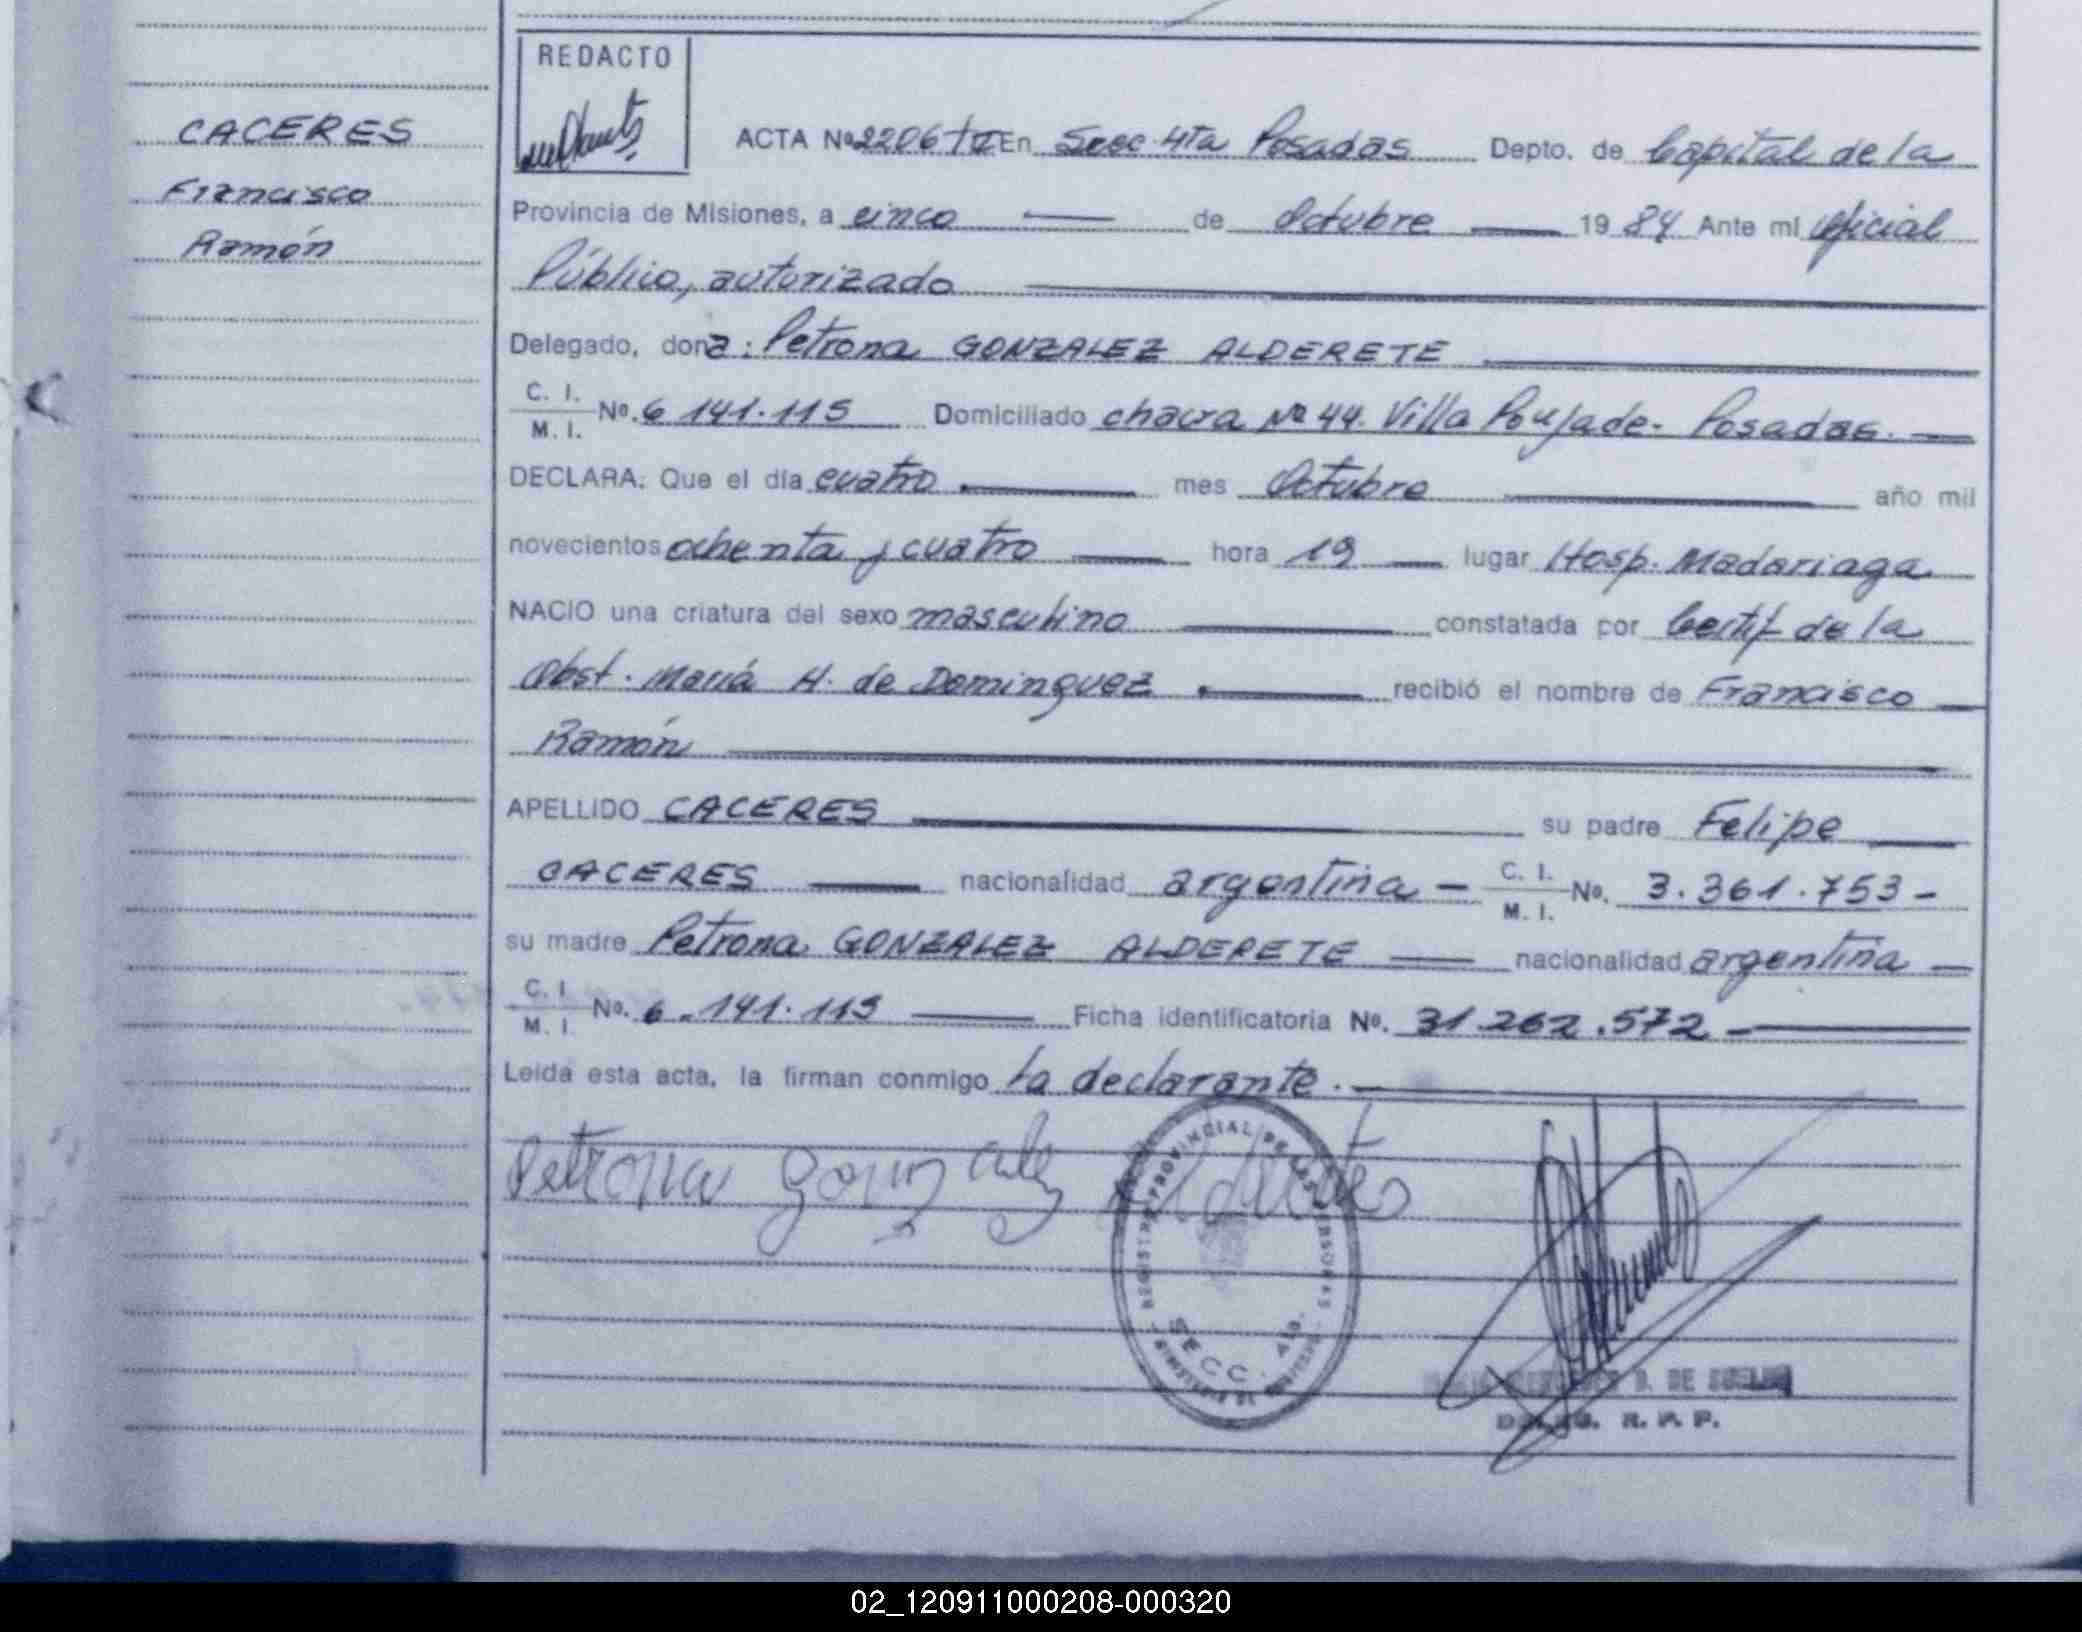 CACERES
Francisco
Ramón
REDACTO
ACTA Nº 2206 tII En Secc 4ta Posadas Depto. de Capital de la
Provincia de Misiones, a cinco de Octubre 1984 Ante mí Oficial
Público, autorizado
Delegado, dona: Petrona GONZALEZ ALDERETE
C. I.
M. I. Nº. 6 141.115 Domiciliado chacra Nº 44. Villa Poujade. Posadas.
DECLARA: Que el día cuatro mes Octubre año mil
novecientos ochenta y cuatro hora 19 lugar Hosp. Madariaga
NACIO una criatura del sexo masculino constatada por Certif de la
Obst. María H. de Dominguez recibió el nombre de Francisco
Ramón
APELLIDO CACERES su padre Felipe
CACERES nacionalidad argentina - C. I.
M. I. Nº. 3.361.753-
su madre Petrona GONZALEZ ALDERETE nacionalidad argentina
C. I.
M. I. Nº. 6.141.115 Ficha identificatoria Nº. 31.262.572-
Leída esta acta, la firman conmigo la declarante.
Petrona Gonzalez
REGISTRO PROVINCIAL DE LAS PERSONAS
SECC. 4ta.
D. DE
DELEG. R. P. P.
02_120911000208-000320